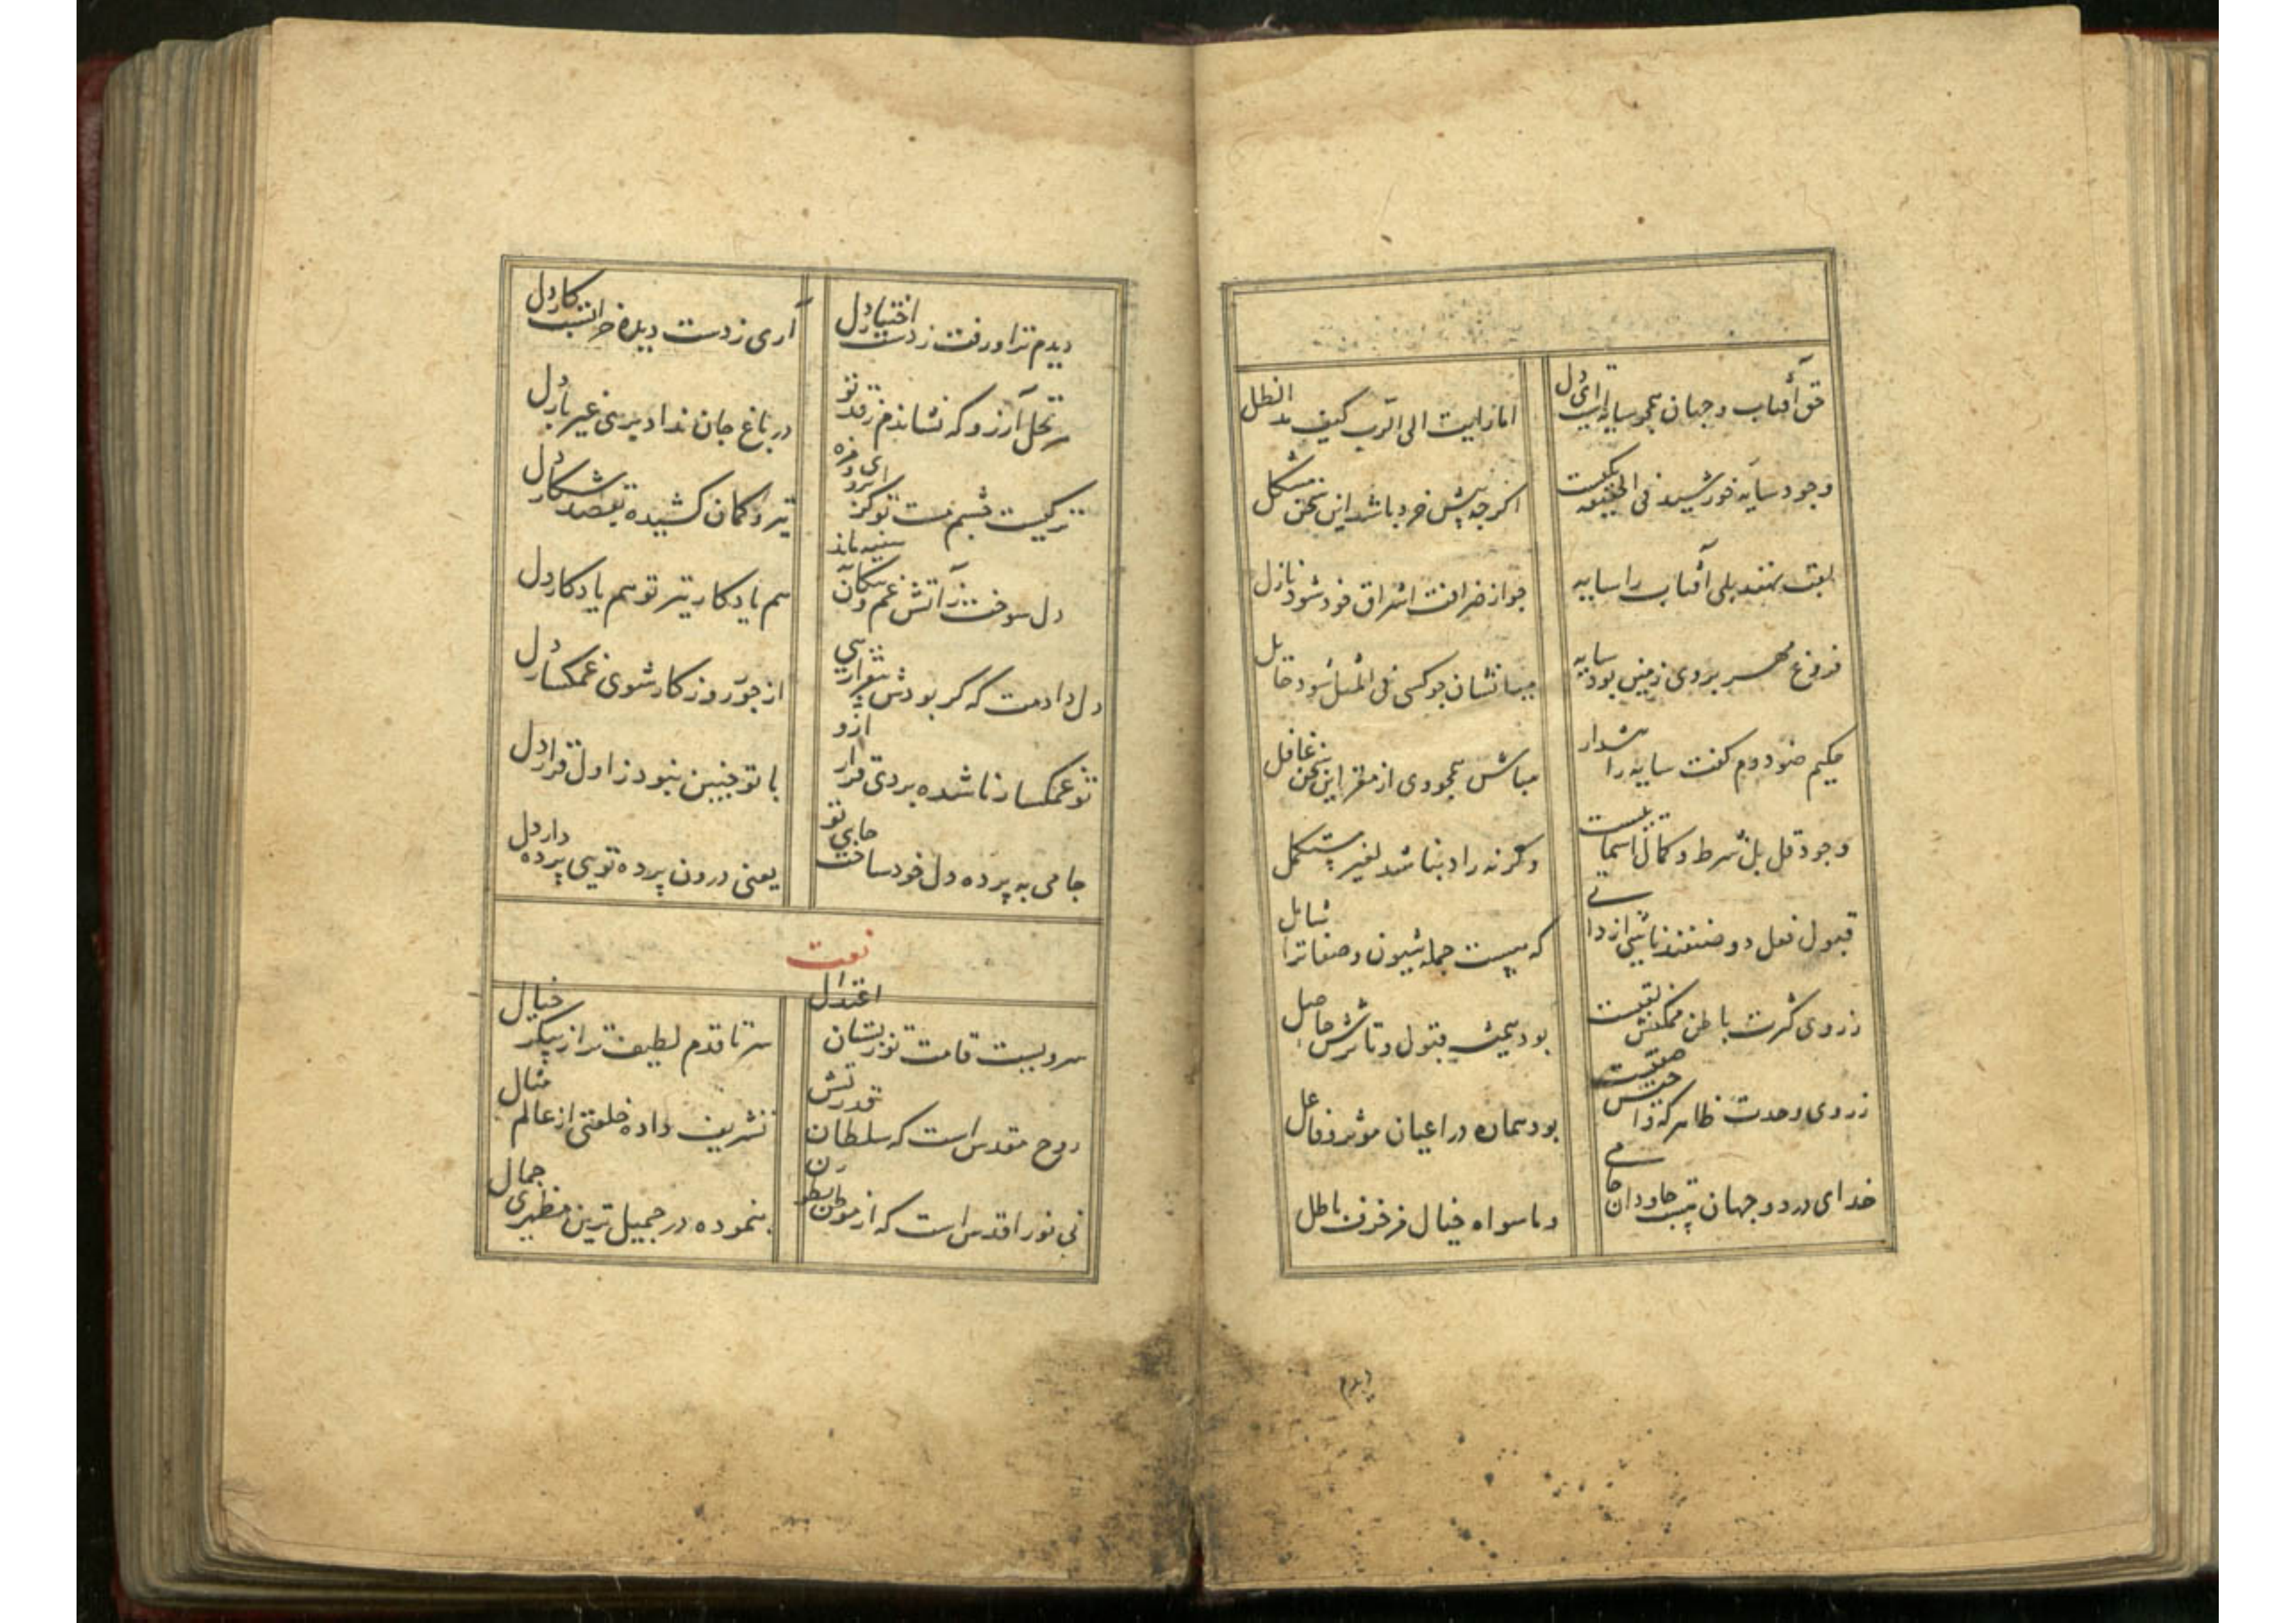 حق آفتاب و جهان همچو سایه است ای دل
اما رایت الی الرب کیف مد الظل
وجود سایه خورشید فی الحقیقه یکیست
اگر چه پیش خرد باشد این سخن مشکل
لغت نهند بلی آفتاب را سایه
چو از اشراق خود شود نازل
فروغ مهر بروی زمین بود سایه
میانشان چو کسی فی المثل شود حایل
حکیم ضو دوم گفت سایه را هشدار
مباش همچو وی از مغز این سخن غافل
وجود قل بل شرط و کمال اسمائیست
وگرنه را نباشد لغیر مستکمل
قبول فعل دو صفتند ناشی از ذاتی
که هست جمله شیون و صفات را شامل
ز روی کثرت باطن تعینست
بود همیشه قبول و تاثرش حاصل
ز روی وحدت ظاهر که ذا
بود هماره در اعیان موثر و فاعل
خدای در دو جهان هست جاودان جامی
و ما سواه خیال مزخرف باطل
دیدم ترا و رفت ز دست اختیار دل
آری ز دست دیده خرابست کار دل
نخل آرزو که نشاندم ز قد تو
در باغ جان نداد بری غیر بار دل
ترکیست چشم مست تو کز ابروی و مژه
تیر و کمان کشیده بقصد شکار دل
دل سوخت ز آتش غم و پیکان سینه ماند
هم یادگار تیر تو هم یادگار دل
دل دادمت که گر بودش از پی
از جور روزگار شوی غمگسار دل
تو غمگسار ناشده بردی قرار ازو
با تو چنین نبود ز اول قرار دل
جامی به پرده دل خود ساخت جای تو
یعنی درون پرده تویی پرده دار دل
نعت
سرویست قامت تو ز بستان اعتدال
سر تا قدم لطیف تر از پیکر خیال
روح مقدس است که سلطان قدرتش
تشریف داده خلعتی از عالم مثال
نی نور اقدس است که از
بنموده در جمیل ترین مظهری جمال